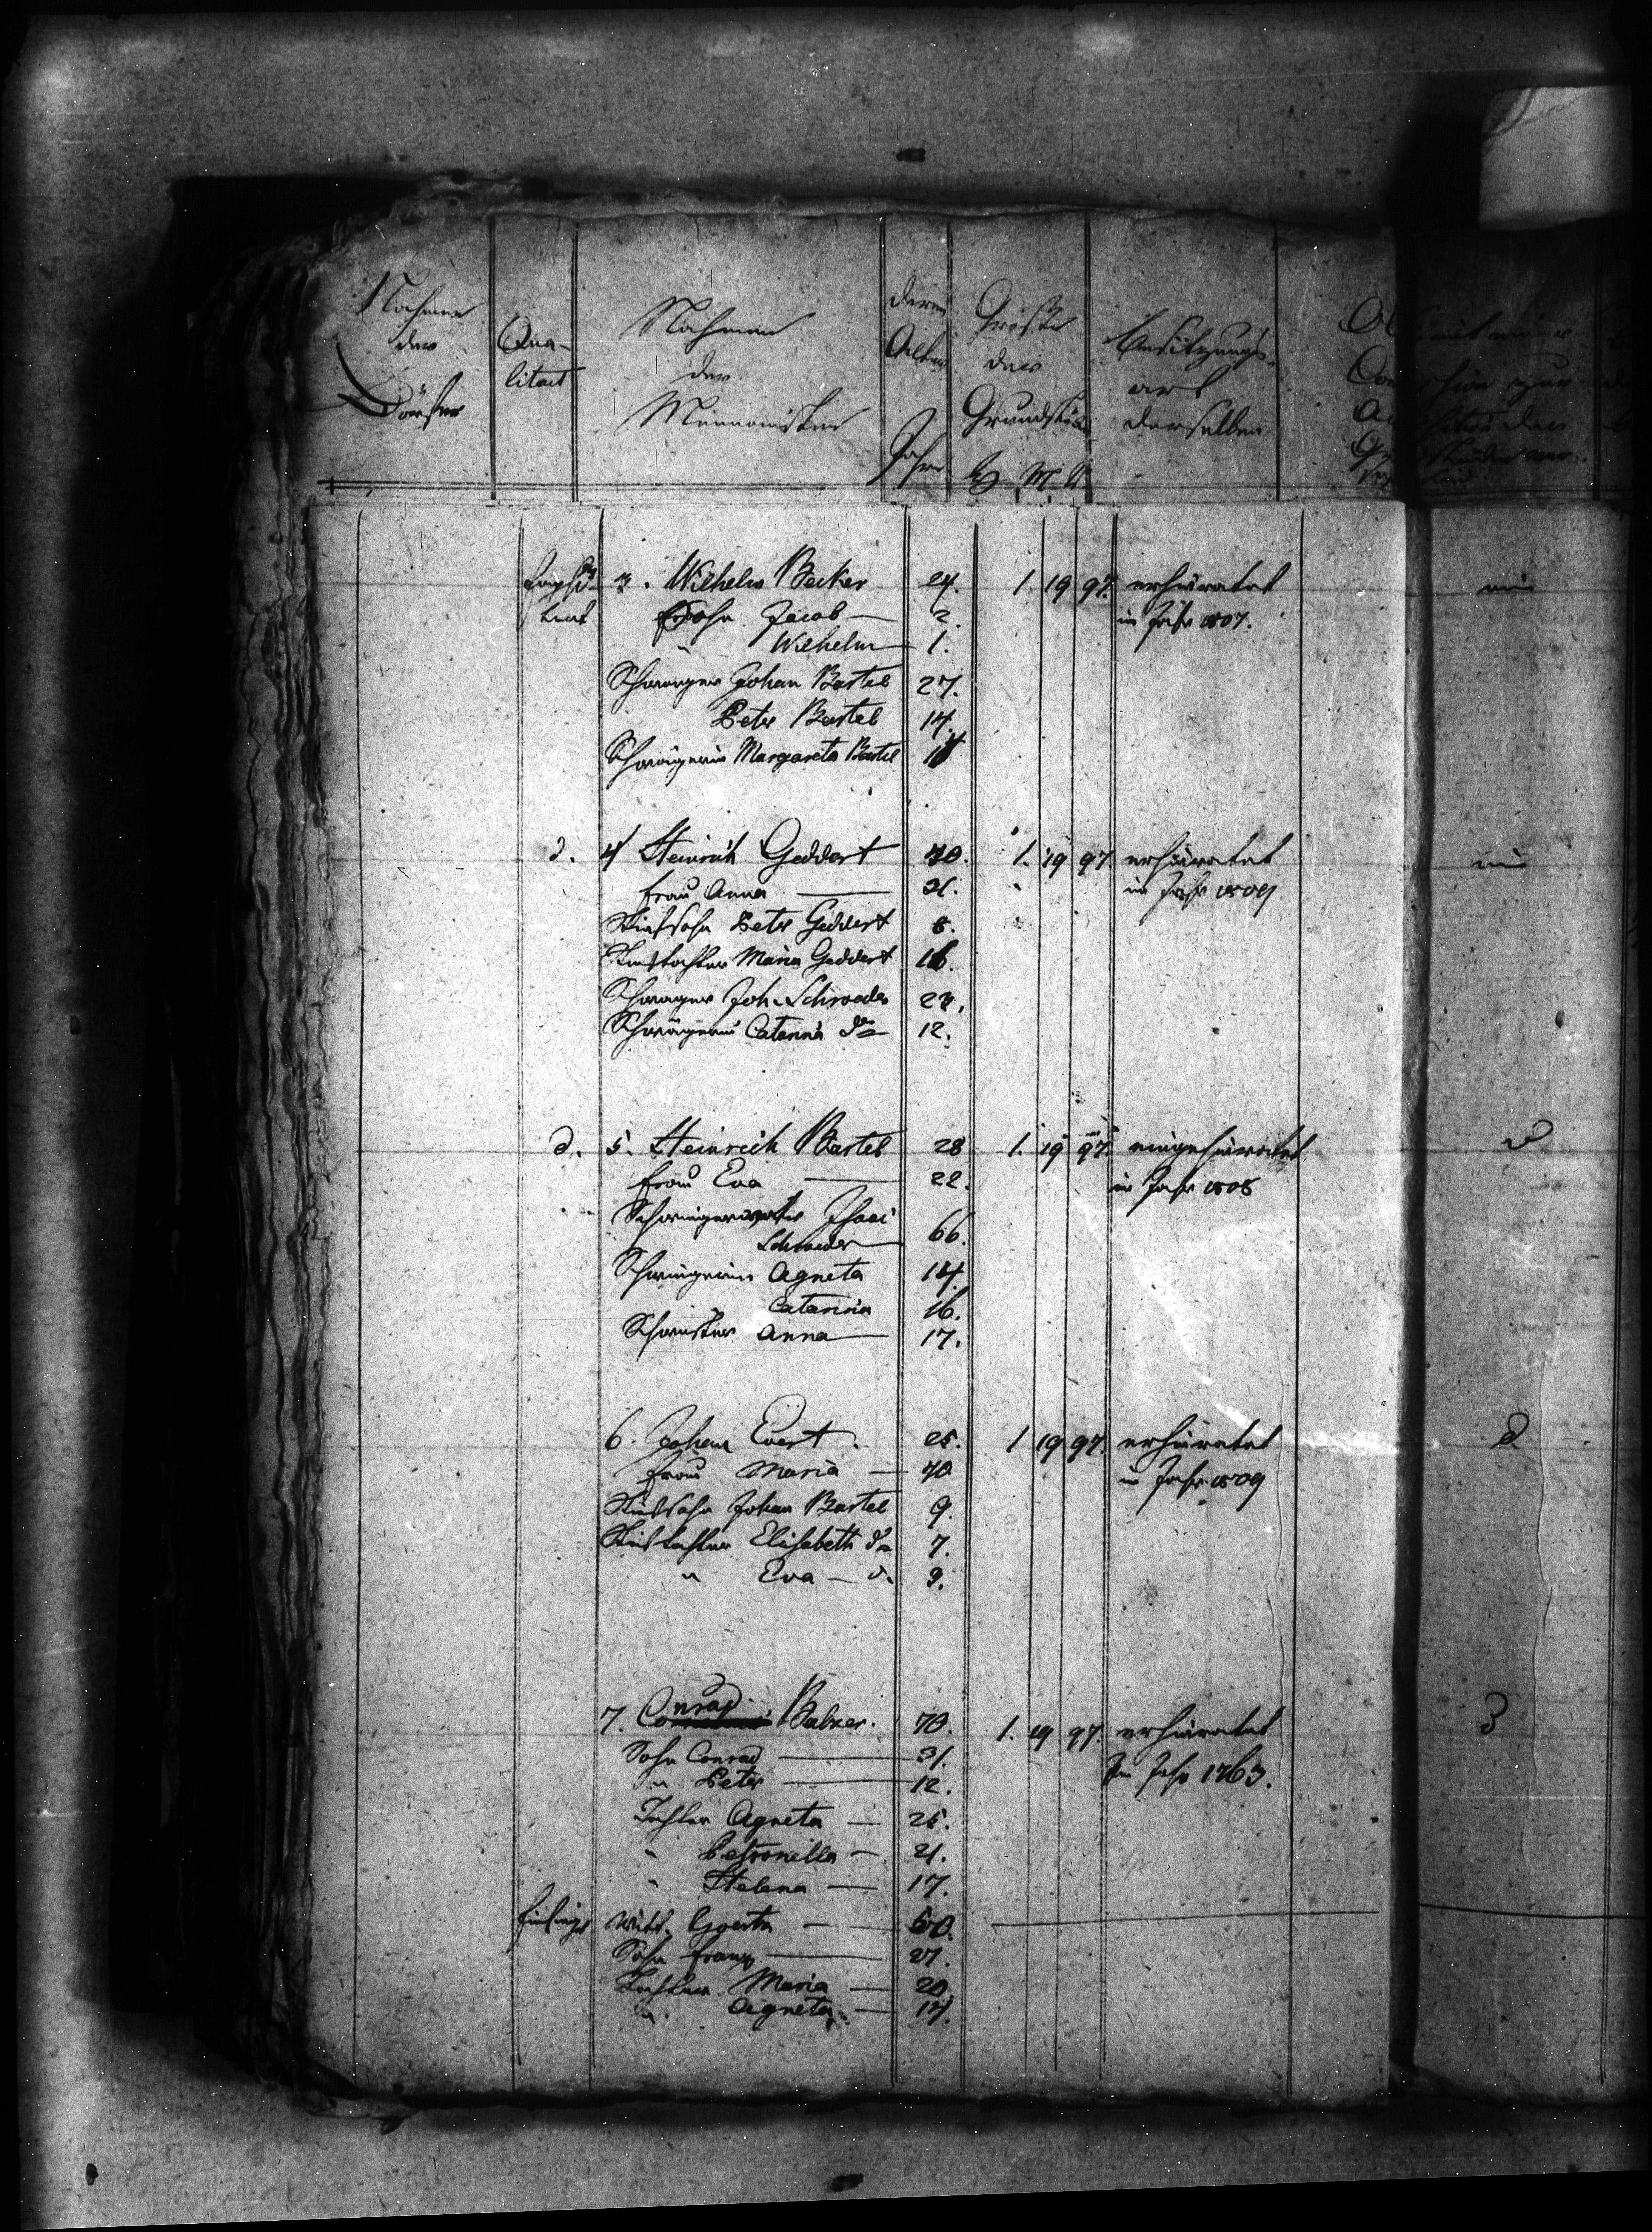 Nahmen der Dörfer
Qualitaet
Nahmen der Mennonisten
Deren Alter Jahr
Größe der Grundstücke H M R
Besitzungs-art derselben
3. Wilhelm Becker 24. 1 19 97. erheiratet
Sohn Jacob — 2. im Jahr 1807.
" Wilhelm — 1.
Schwager Johan Bartel 27.
Peter Bartel 14.
Schwägerin Margareta Bartel
d. 4 Heinrich Geddert 40. 1. 19 97 erheiratet
Frau Anna — 31. im Jahr 1809
Stiefsohn Peter Geddert 8.
Stieftochter Maria Geddert 16.
Schwager Joh. Schroeder 23.
Schwägerin Catarina do 12.
d. 5. Heinrich Bartel 28 1. 19 97. eingeheiratet
Frau Eva — 22. im Jahr 1808
Schwiegervater Isaac
Schroeder — 66.
Schwägerin Agneta 14.
Catarina 16.
Schwester Anna — 17.
6. Johan Evert. 25. 1 19 97. erheiratet d.
Frau Maria — 40 im Jahr 1809
Stiefsohn Johan Bartel 9.
Stieftochter Elisabeth do 7.
" Eva — do 3.
7. Conrad Balzer. 70. 1. 19 97. erheiratet
Sohn Conrad — 31. Im Jahr 1763.
" Peter — 12.
Tochter Agneta — 25.
" Petronella — 21.
" Helena — 17.
Einlieger Witt. Goerts — 60.
Sohn Franz — 27.
Tochter Maria — 20.
" Agneta — 14.